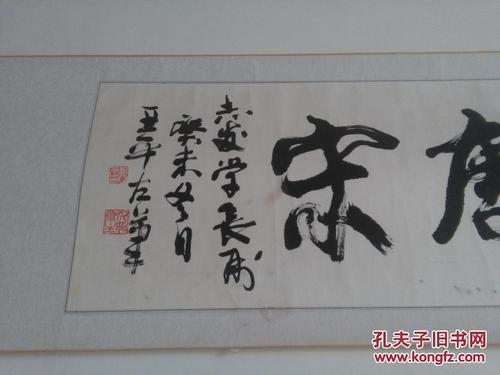 唐宋
学长属
癸未冬日
平左笔
孔夫子旧书网
www.kongfz.com